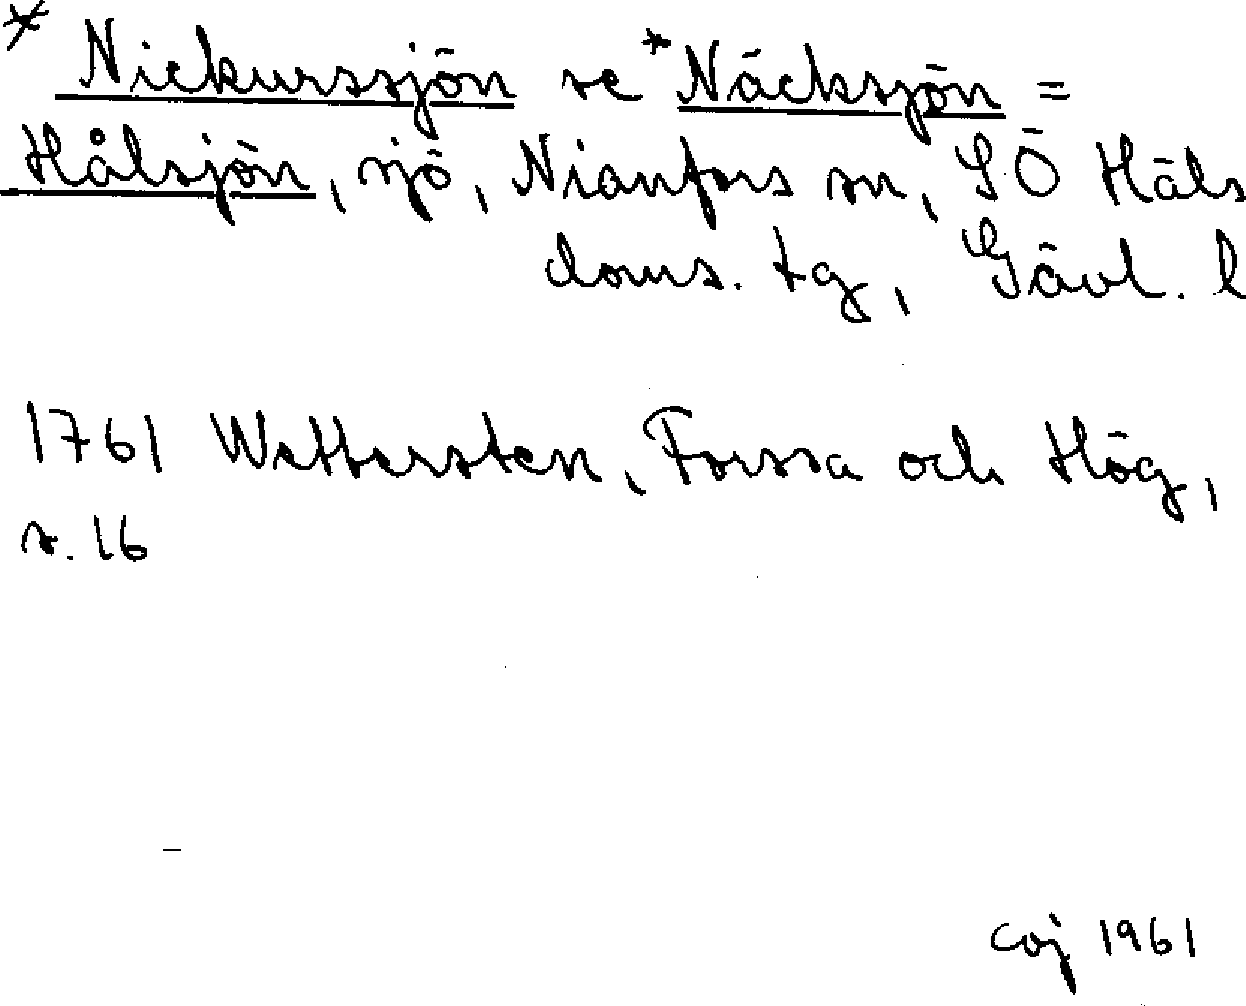 * Nickurssjön se *Näcksjön =
Hålsjön, sjö, Nianfors sn, SÖ Häls
doms. tg, Gävl. l
1761 Wettersten, Forssa och Hög,
s. 16
coj 1961